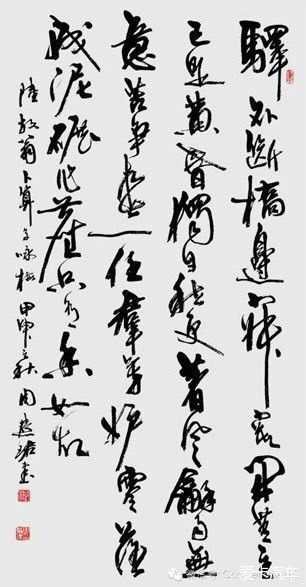 驛外斷橋邊寂寞開無主
已是黃昏獨自愁更著風龢雨無
意苦爭春一任羣芳妒零落
成泥碾作塵只有香如故
陸放翁卜算子咏梅甲申秋周慧珺書
爱卡汽车